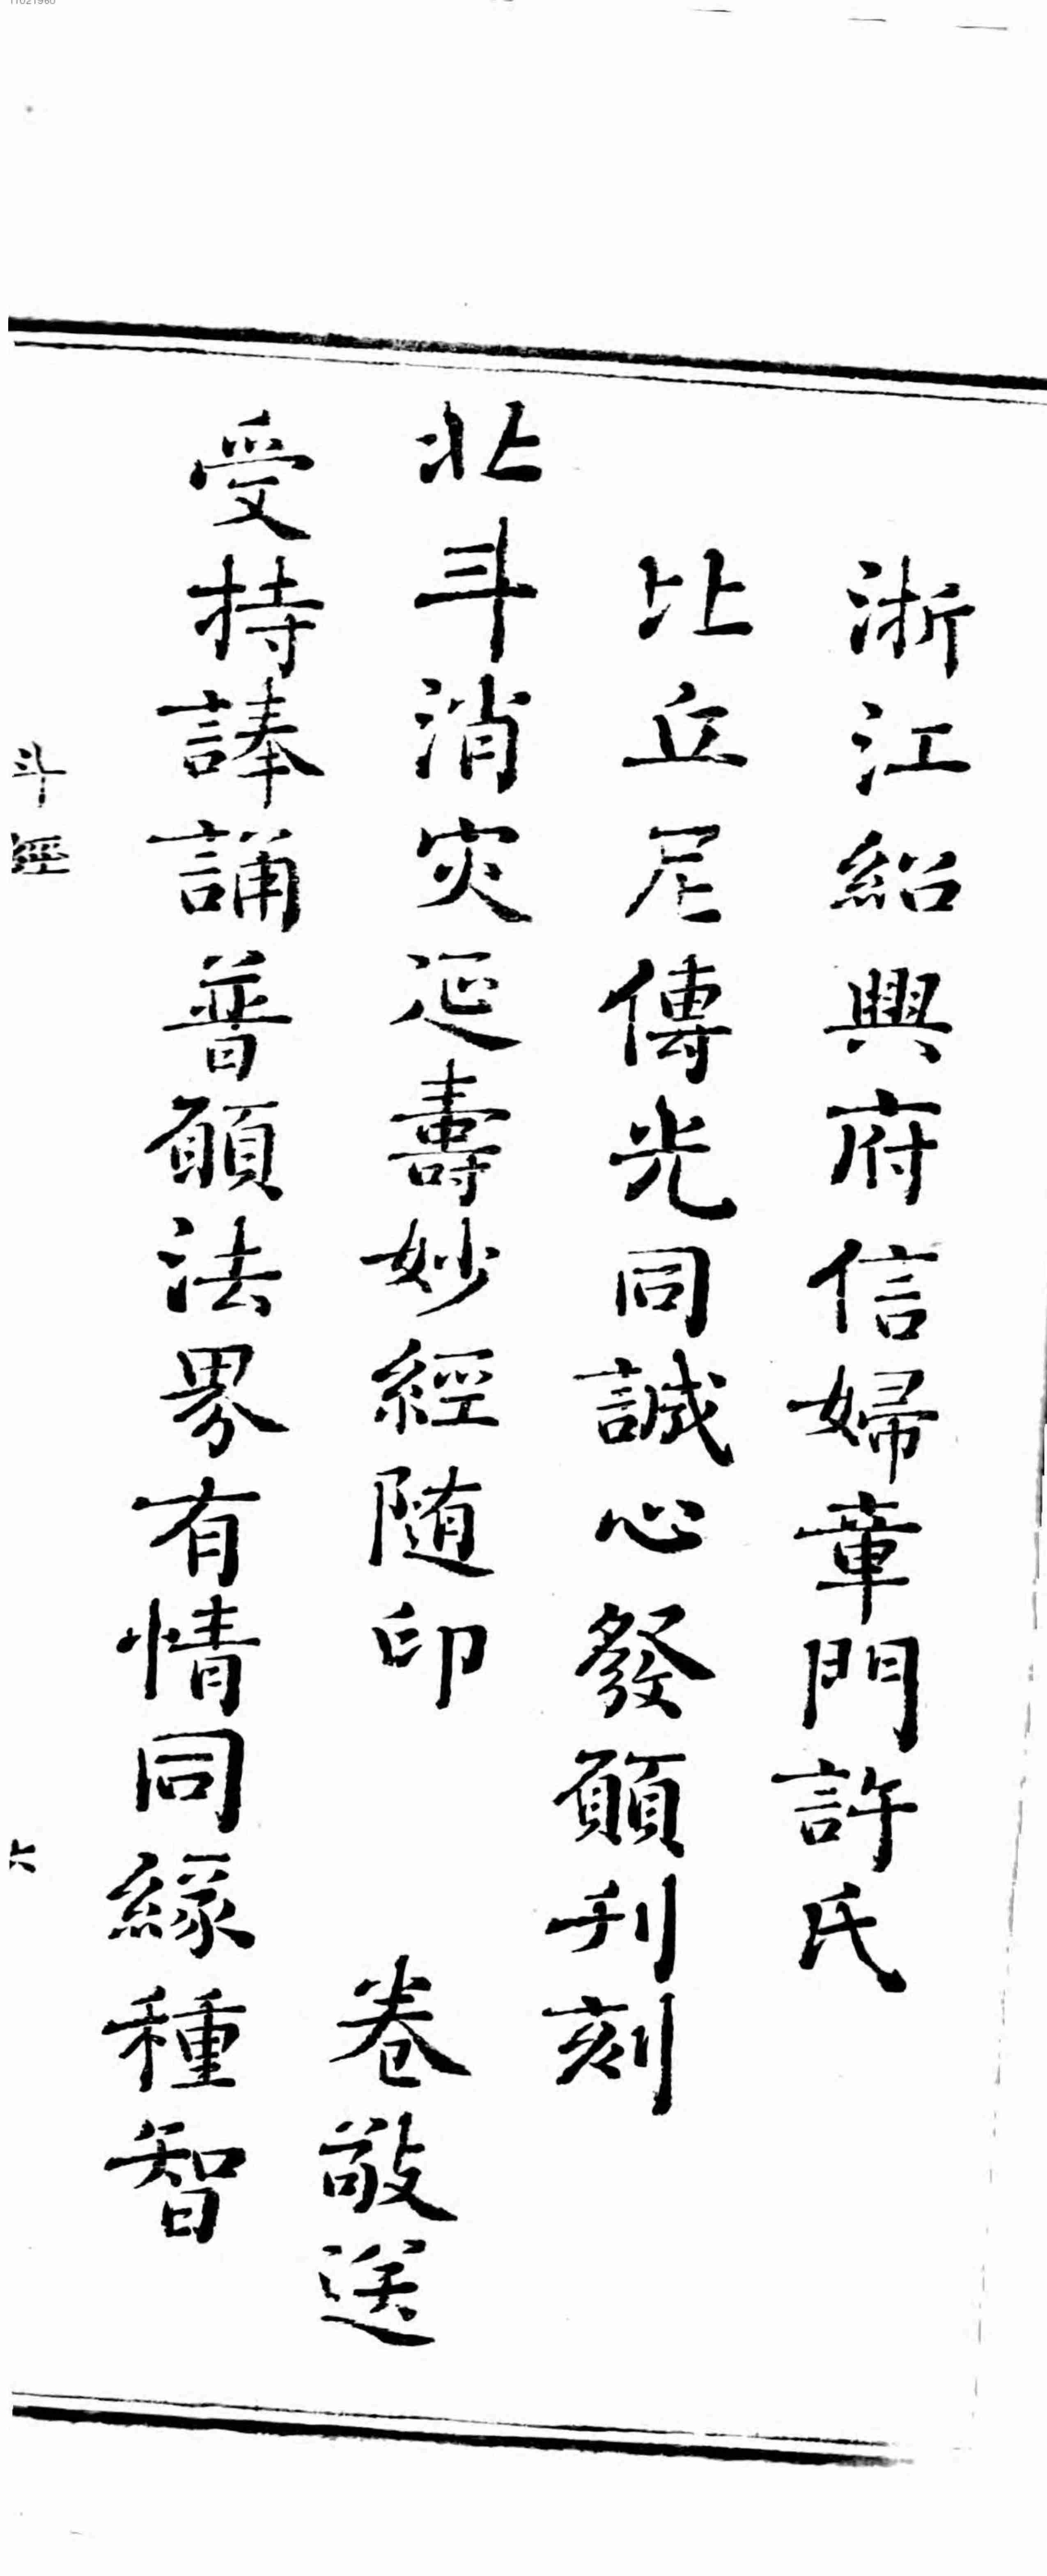 浙江紹興府信婦章門許氏
比丘尼傳光同誠心發願刋刻
北斗消灾延壽妙經随印　卷敬送
受持諱誦普願法界有情同緣種智
斗經
六
11021960